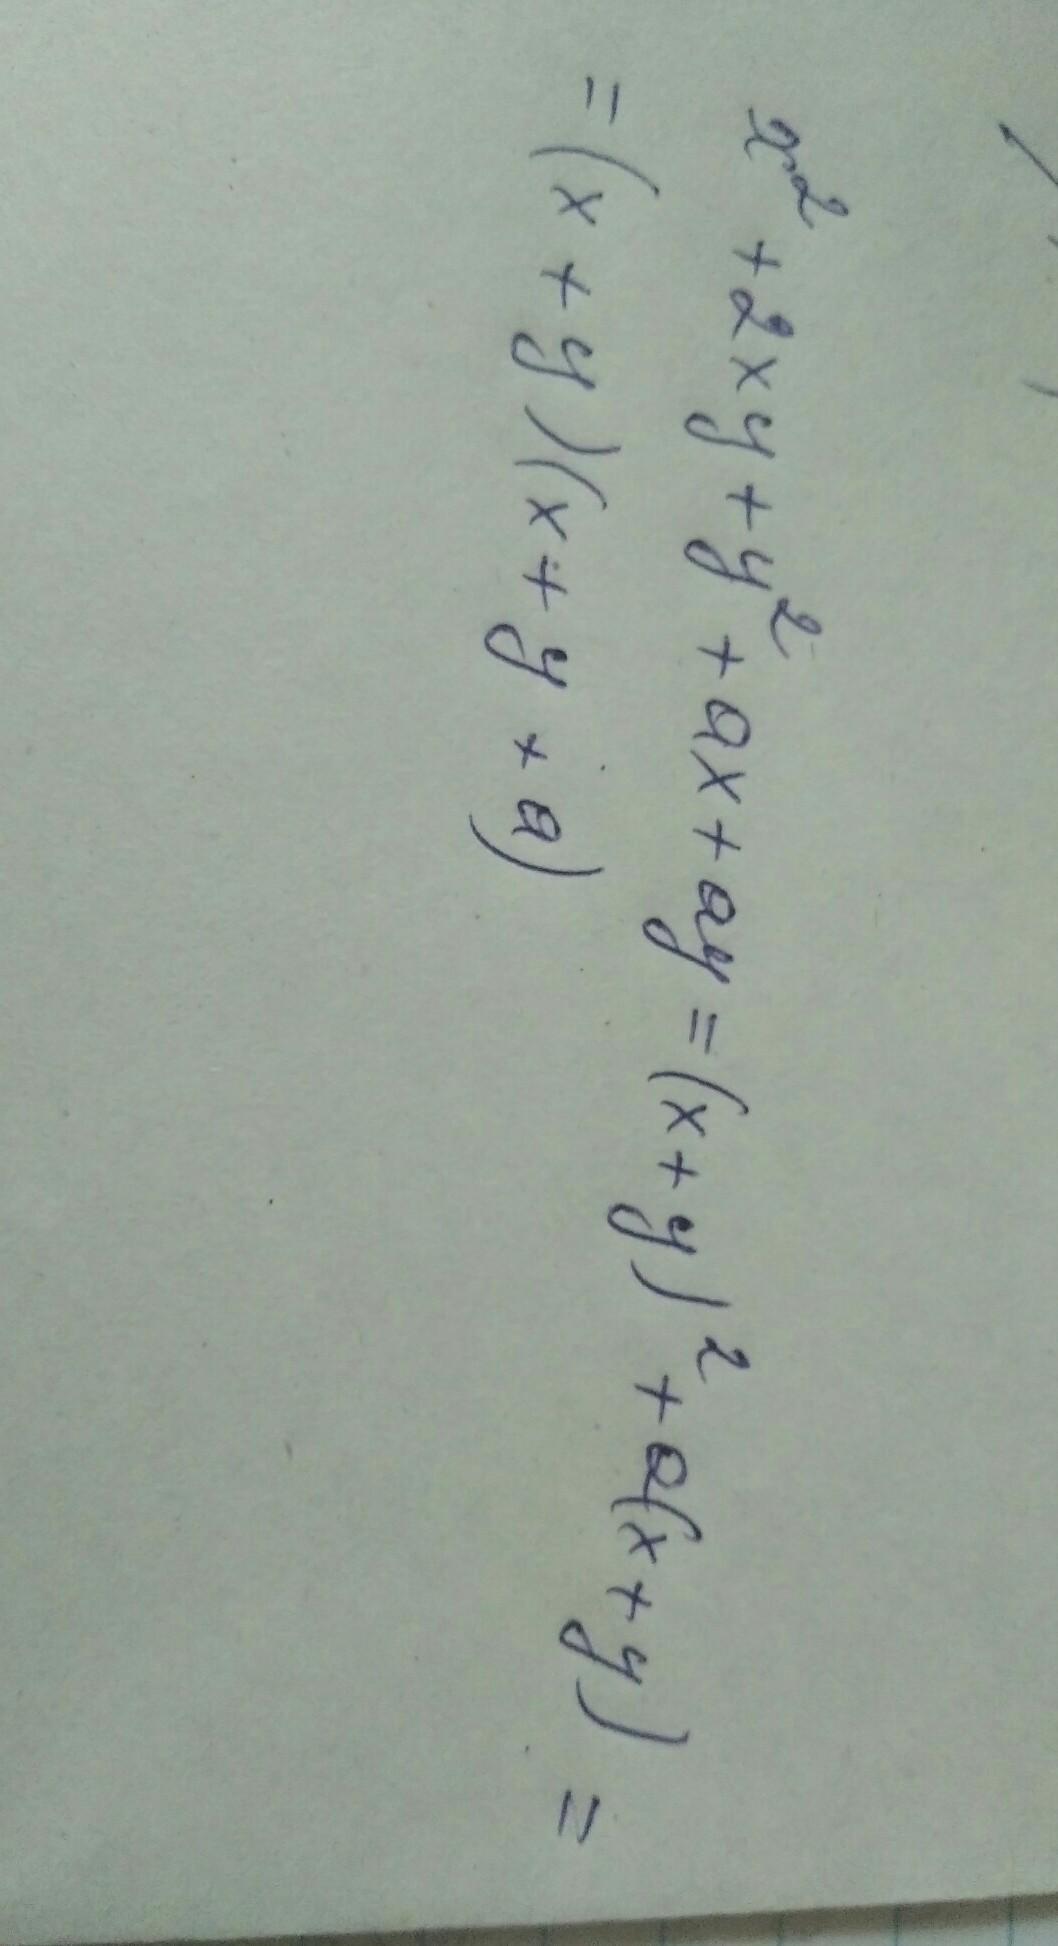 x² + 2xy + y² + ax + ay = (x + y)² + a(x + y) =
= (x + y)(x + y + a)